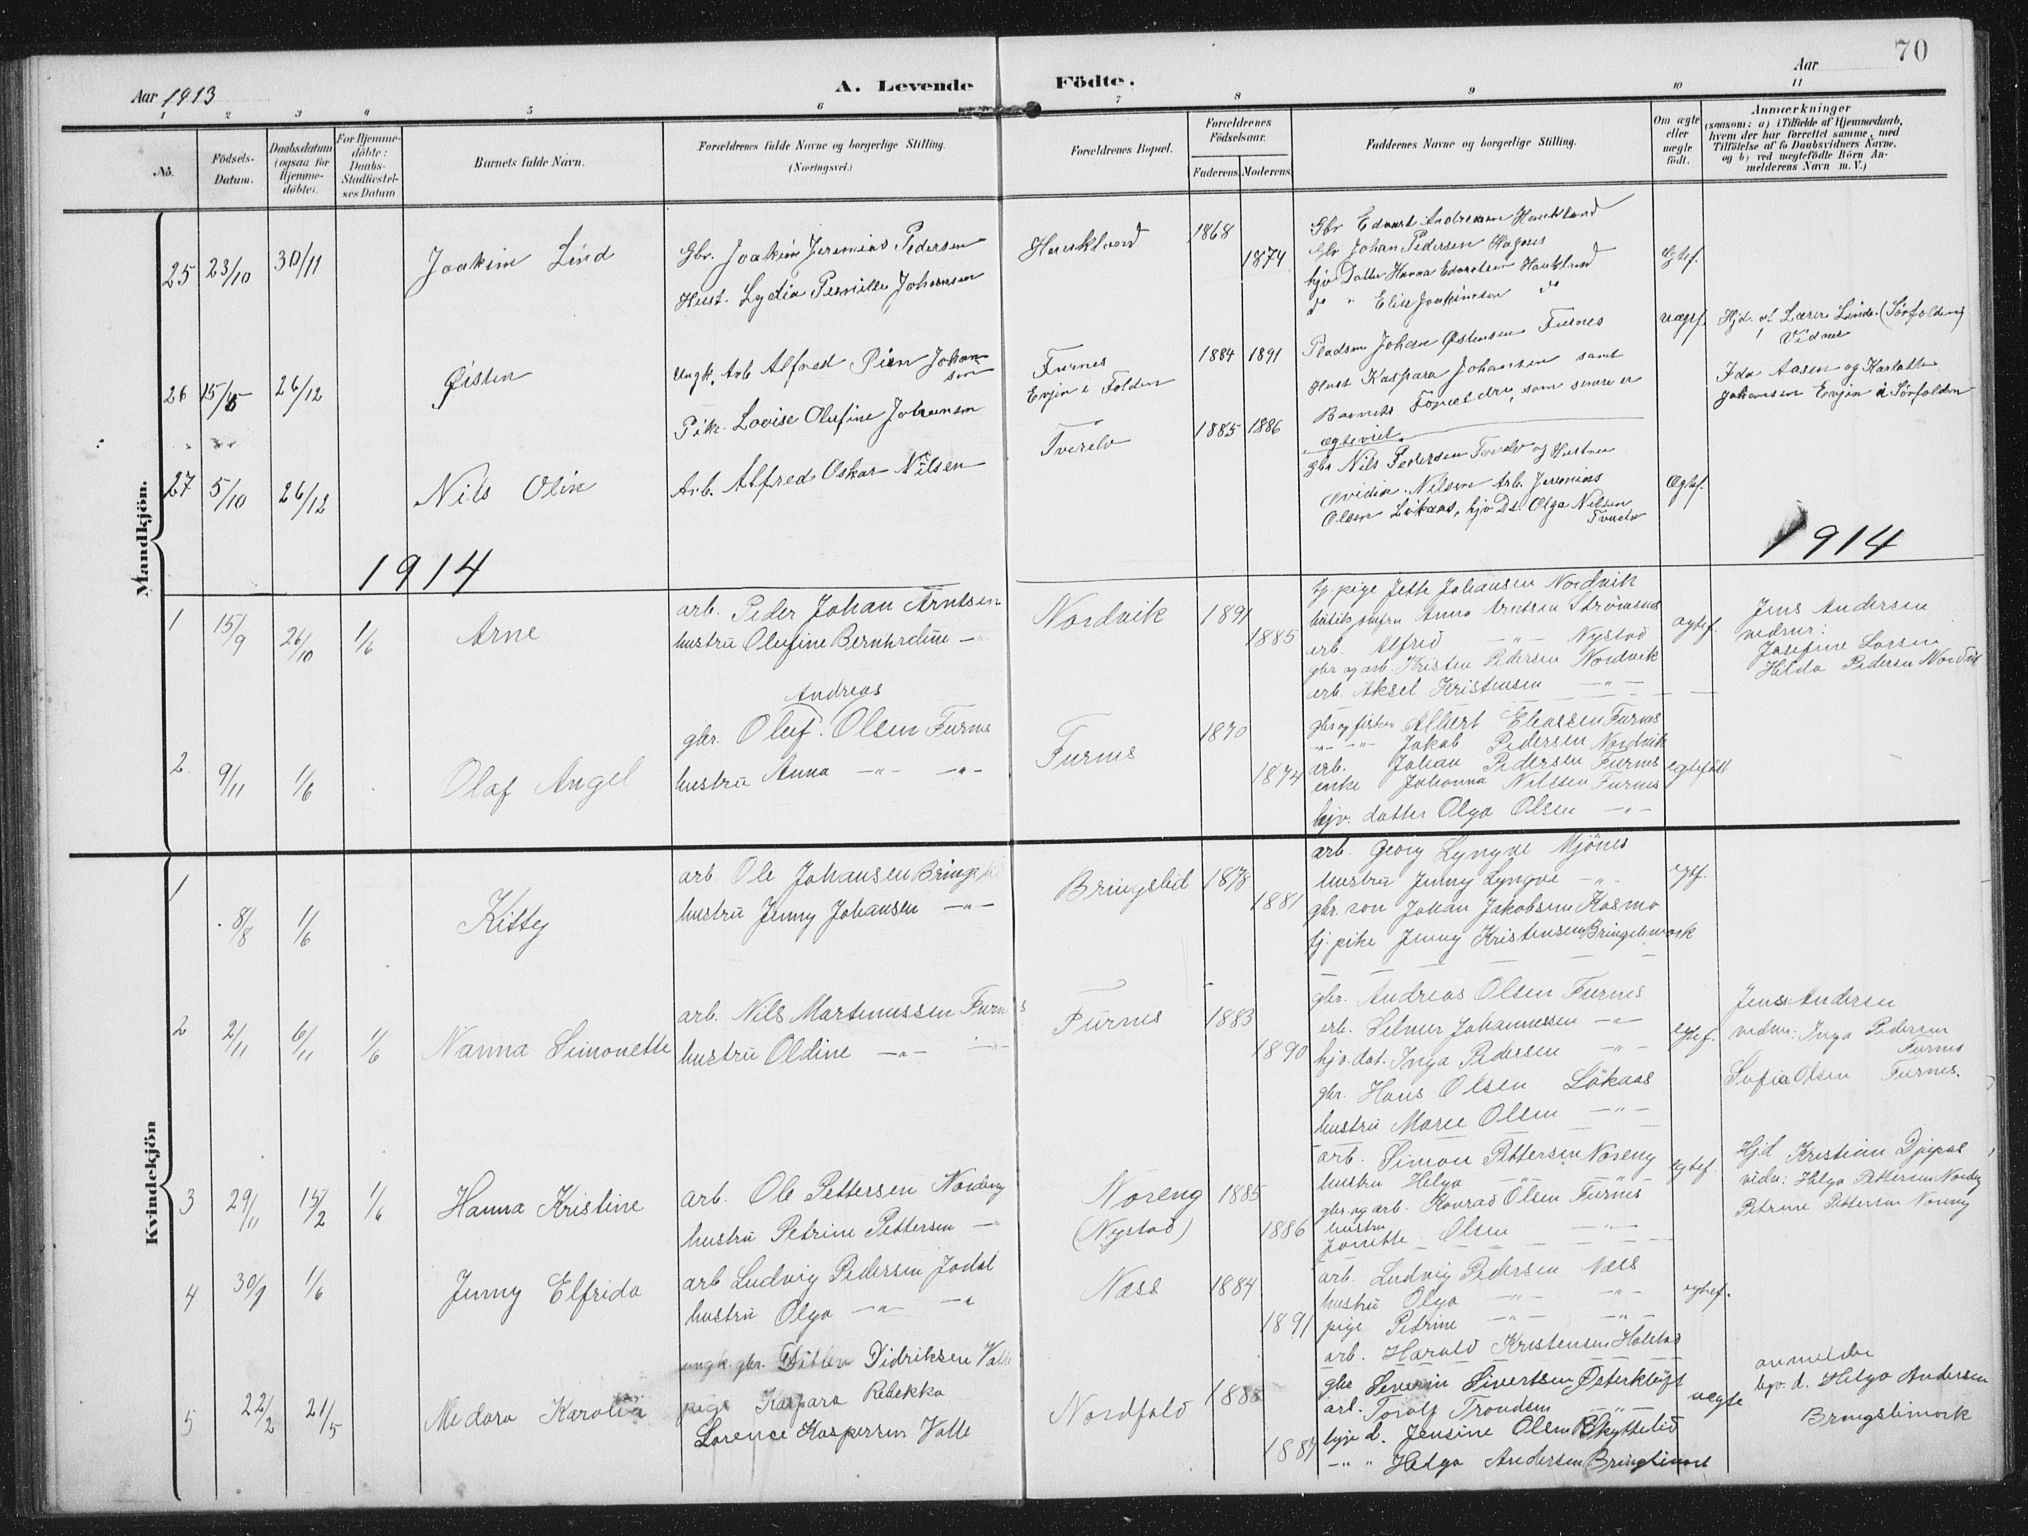 70
Aar 1913
A. Levende Födte.
Aar
1 2 3 4 5 6 7 8 9 10 11
No.
Födsels-Datum.
Daabsdatum (ogsaa for Hjemme-döbte).
For Hjemme-döbte: Daabs-Stadfæstel-ses Datum
Barnets fulde Navn.
Forældrenes fulde Navne og borgerlige Stilling. (Næringsvei.)
Forældrenes Bopæl.
Forældrenes Födselsaar.
Faderens. Moderens.
Faddernes Navne og borgerlige Stilling.
Om ægte eller uægte födt.
Anmærkninger (saasom: a) i Tilfælde af Hjemmedaab, hvem der har forrettet samme, med Tilföielse af to Daabsvidners Navne, og b) ved uægtefödte Börn An-melderens Navn m. V.)
Mandkjön.
25 23/10 30/11 Joakim Lind
Gbr. Joakim Jeremias Pedersen
Hust. Lydia Pernille Johansen
Hauskland 1868 1874
Gbr Edvart Andreassen Hauskland
Gbr Johan Pedersen Hagnes
hjv Datter Hanna Edvartsen Hauskland
d " Elise Joakimsen do
Egtef.
26 15/5 26/12 Østen
Ungk. Arb Alfred Johansen
Pike Lovise Olufine Johansen
Furnes
Evjen i Folden
1884 1891
Pladsm Johan Østensen Furnes
Hust Kaspara Johansen samt
Barnets Forældre, som senere er
ægteviet
uægf.
Hjd. af Lærer Lind. (Sørfolden)
Vidner
Ida Aasen og Karlotte
Johansen Evjen i Sørfolden
27 5/10 26/12 Nils Olin
Arb. Alfred Oskar Nilsen
Tverelv 1885 1886
gbr Nils Pedersen Tverelv og Hustru
Nilsen Arb. Jeremias
Olsen Løkaas, hjv Dt. Olga Nilsen
Tverelv
Egtef.
1914
1914
1 15/9 26/10 1/6 Arne
arb. Peder Johan Arntsen
hustru Olufine Bernhardine — " —
Nordvik 1891 1885
tj. pige Jette Johansen Nordvik
butik jomfru Anna Arntsen Strømsnes
arb. Alfred — " — Nystad
gbr og arb. Kristen Pedersen Nordvik
arb. Aksel Kristensen — " —
egtef.
Jens Andersen
vidner:
Josefine Larsen
Hilda Pedersen Nordvik
2 9/11 1/6 Olaf Angel
Andreas
gbr. Oluf Olsen Furnes
hustru Anna — " — — " —
Furnes 1870 1874
gbr og fisker Albert Eliassen Furnes
— " — Jakob Pedersen Nordvik
arb. Johan Pedersen Furnes
enke Johanna Nilssen Furnes
hjv. datter Olga Olsen — " —
egtefödt
Kvindekjön
1 8/8 1/6 Kitty
arb. Ole Johansen Bringslid
hustru Jenny Johansen — " —
Bringslid 1878 1881
arb. Georg Lyngve Mjönes
hustru Jenny Lyngve — " —
gbr. søn Johan Jakobsen Kosmo
tj. pike Jenny Kristensen Bringslimark
egtf.
2 2/11 6/11 1/6 Nanna Simonette
arb. Nils Martinussen Furnes
hustru Oldine — " — — " —
Furnes 1883 1890
gbr. Andreas Olsen Furnes
arb. Selmer Johannessen — " —
hjv. dat. Inga Pedersen — " —
gbr. Hans Olsen Løkaas
hustru Maree Olsen — " —
egtef.
Jens Andersen
vidner: Inga Pedersen
Furnes
Sofia Olsen Furnes.
3 29/11 15/2 1/6 Hanna Kristine
arb. Ole Pettersen Noreng
hustru Petrine Pettersen — " —
Noreng
(Nystad)
1885 1886
arb. Simon Pettersen Noreng
hustru Helga — " —
gbr. og arb. Konrad Olsen Furnes
hustru
Jonette Olsen — " —
egtef.
Hjd Kristian Djupos
vidn: Helga Pettersen Noreng
Petrine Pettersen Noreng
4 30/9 1/6 Jenny Elfrida
arb Ludvig Pedersen Jodal
hustru Olga — " — — " —
Næss 1884 1891
arb. Ludvig Pedersen Næss
hustru Olga — " — — " —
pige Petrine — " — — " —
arb. Harald Kristensen Holstad
egtef.
5 22/2 21/5 Medora Karolia
ungk. gbr. Ditlev Didriksen Valle
pige Kaspara Rebekka
Lorence Kaspersen Valle
Nordfold 1888 1887
gbr Severin Sivertsen Østerkløft
arb. Torolf Trondsen — " —
hjv d. Jensine Olsen Skyttelid
— " — Helga Andersen Bringslimark
uegte
anmelder
hjv. d. Helga Andersen
Bringslimark